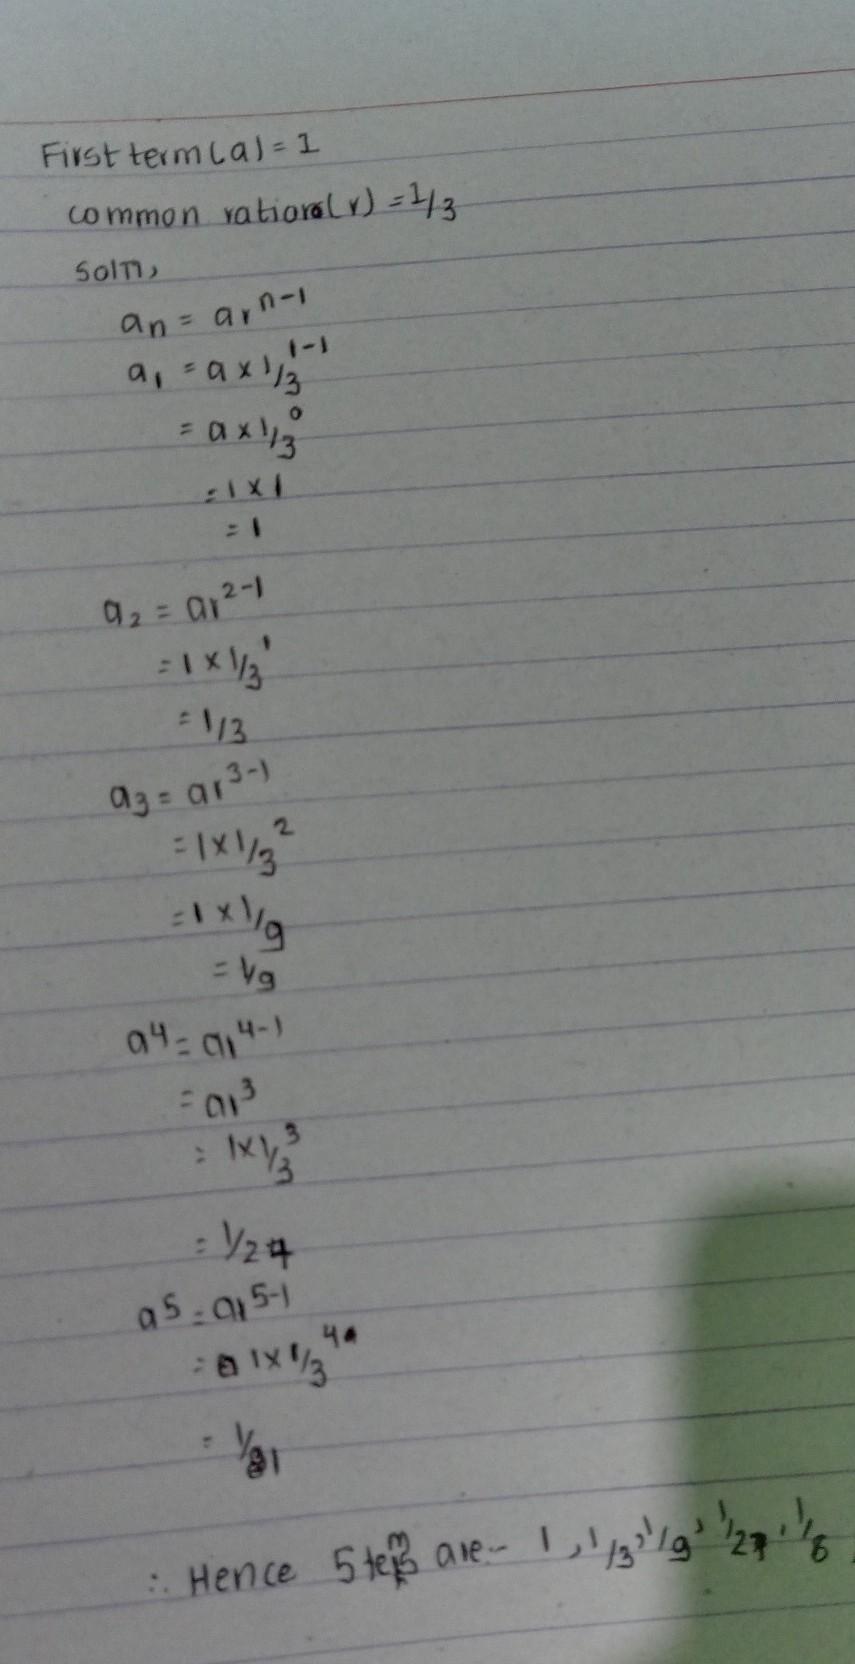 First term(a) = 1
common ration(r) = 1/3
soln,
an = ar^n-1
a1 = a x 1/3^1-1
= a x 1/3^0
= 1 x 1
= 1
a2 = ar^2-1
= 1 x 1/3^1
= 1/3
a3 = ar^3-1
= 1 x 1/3^2
= 1 x 1/9
= 1/9
a4 = ar^4-1
= ar^3
= 1x1/3^3
= 1/27
a5 = ar^5-1
= 1x1/3^4
= 1/81
∴ Hence 5 terms are:- 1, 1/3, 1/9, 1/27, 1/8